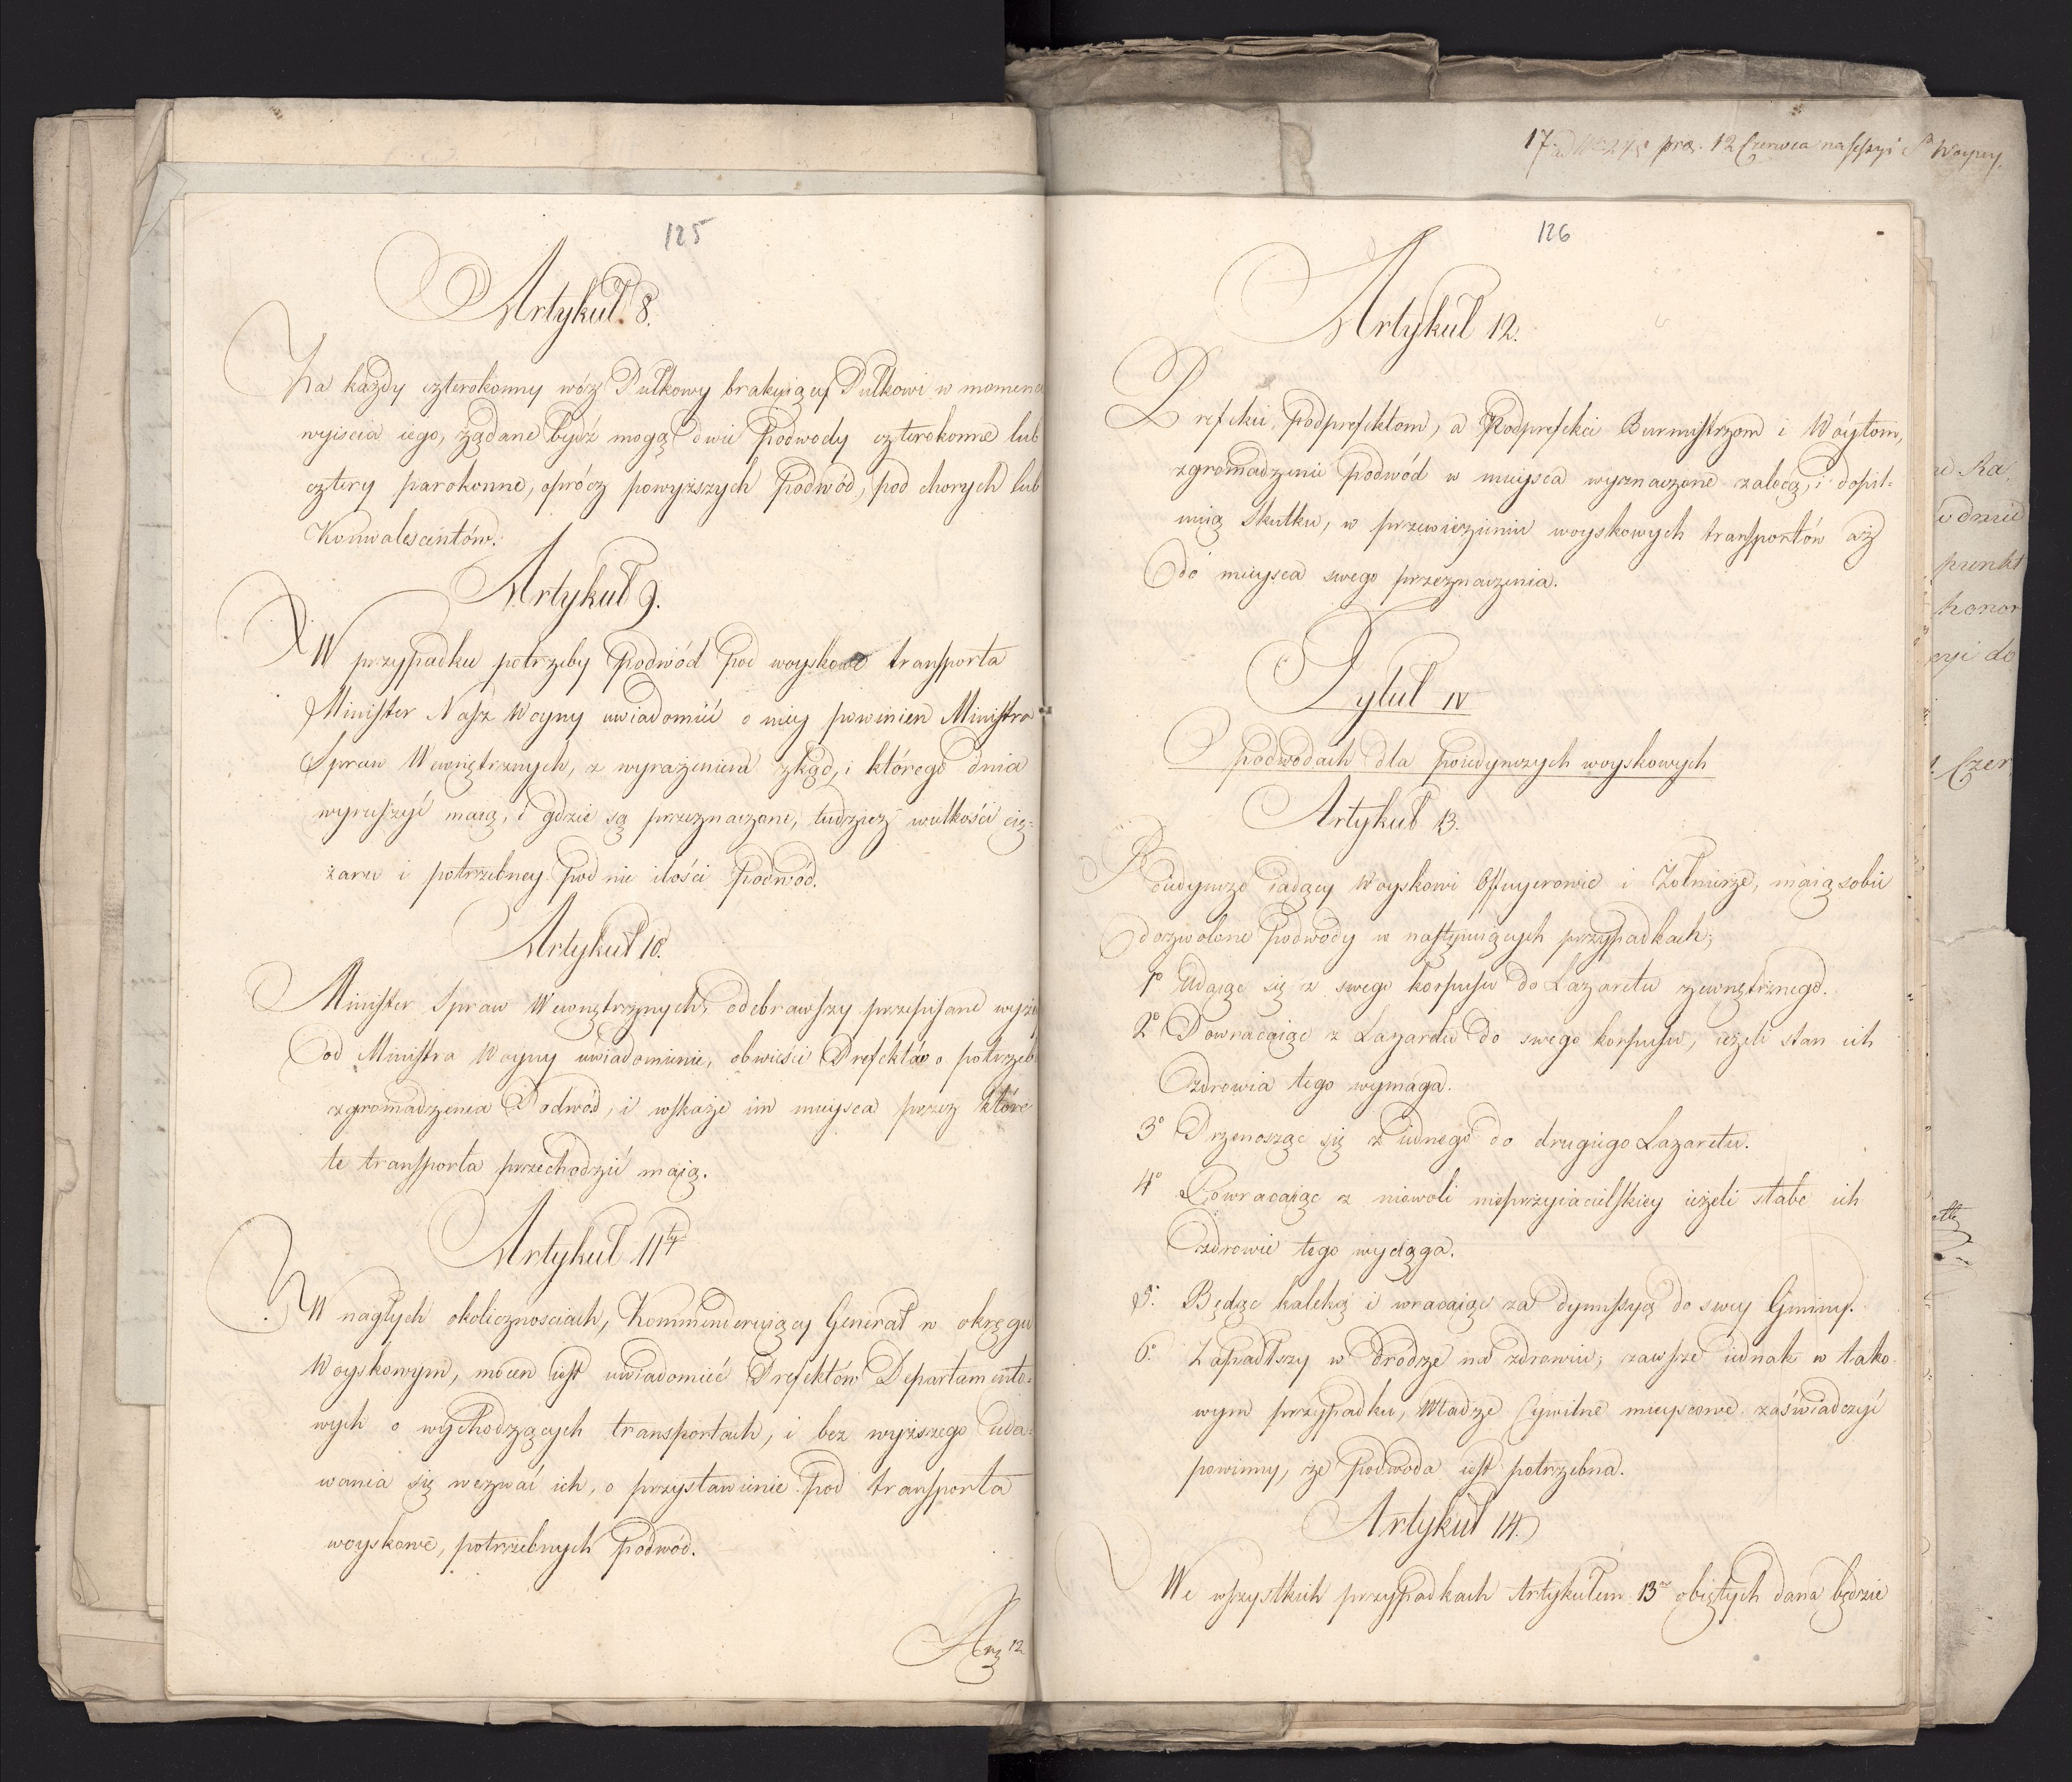 125
Artykuł 8.
Za każdy czterokonny wóz Pułkowy brakuiący Pułkowi w momen
wyiścia iego, żądane bydź mogą dwie podwody czterokonne lub
cztery parokonne, oprócz powyższych podwód, pod chorych lub
Konwalescentów.
Artykuł 9.
W przypadku potrzeby podwód pod woyskowe transporta
Minister Nasz Woyny uwiadomić o niey powinien Ministra
Spraw Wewnętrznych, z wyrażeniem zkąd, i którego dnia
wyruszyć maią, i gdzie są przeznaczone, tudzież wielkości cię=
żaru i potrzebney pod nie ilości podwód.
Artykuł 10.
Minister Spraw Wewnętrznych, odebrawszy przepisane wyże
od Ministra Woyny uwiadomienie, obwieści Prefektów o potrzeb
zgromadzenia Podwód, i wskaże im mieysca przez które
te transporta przechodzić maią.
Artykuł 11ty
W nagłych okolicznościach, Kommenderuiący Generał w okręgu
Woyskowym, mocen iest uwiadomić Prefektów Departamento=
wych o wychodzących transportach, i bez wyższego uda=
wania się wezwać ich, o przystawienie pod transporta
woyskowe, potrzebnych podwód.
12
17 pra. 12 Czerwca na sessyi Woyny.
126
Artykuł 12.
Prefekci podprefektom, a Podprefekci Burmistrzom i Wóytom,
zgromadzenie podwód w mieysca wyznaczone zalecą, i dopil=
nuią skutku, w przewiezieniu woyskowych transportów aż
do mieysca swego przeznaczenia.
Tytuł IV
O podwodach dla poiedynczych woyskowych
Artykuł 13.
Poiedynczo iadący Woyskowi Officyerowie i Żołnierze, maią sobie
dozwolone podwody w następuiących przypadkach;
1o Udaiąc się z swego korpusu do Lazaretu zewnętrznego.
2o Powracaiąc z Lazaretu do swego korpusu, ieżeli stan ich
zdrowia tego wymaga.
3o Przenosząc się z iednego do drugiego Lazaretu.
4o Powracaiąc z niewoli nieprzyiacielskiey ieżeli słabe ich
zdrowie tego wyciąga.
5. Będąc kaleką i wracaiąc za dymissyą do swey Gminy.
6. Zapadłszy w drodze na zdrowiu; zawsze iednak w tako
wym przypadku, Władze Cywilne mieyscowe zaświadczyć
powinny, że podwoda iest potrzebna.
Artykuł 14.
We wszystkich przypadkach Artykułem 13m obiętych dana będzie
punkt
honor
cyi do
Czer